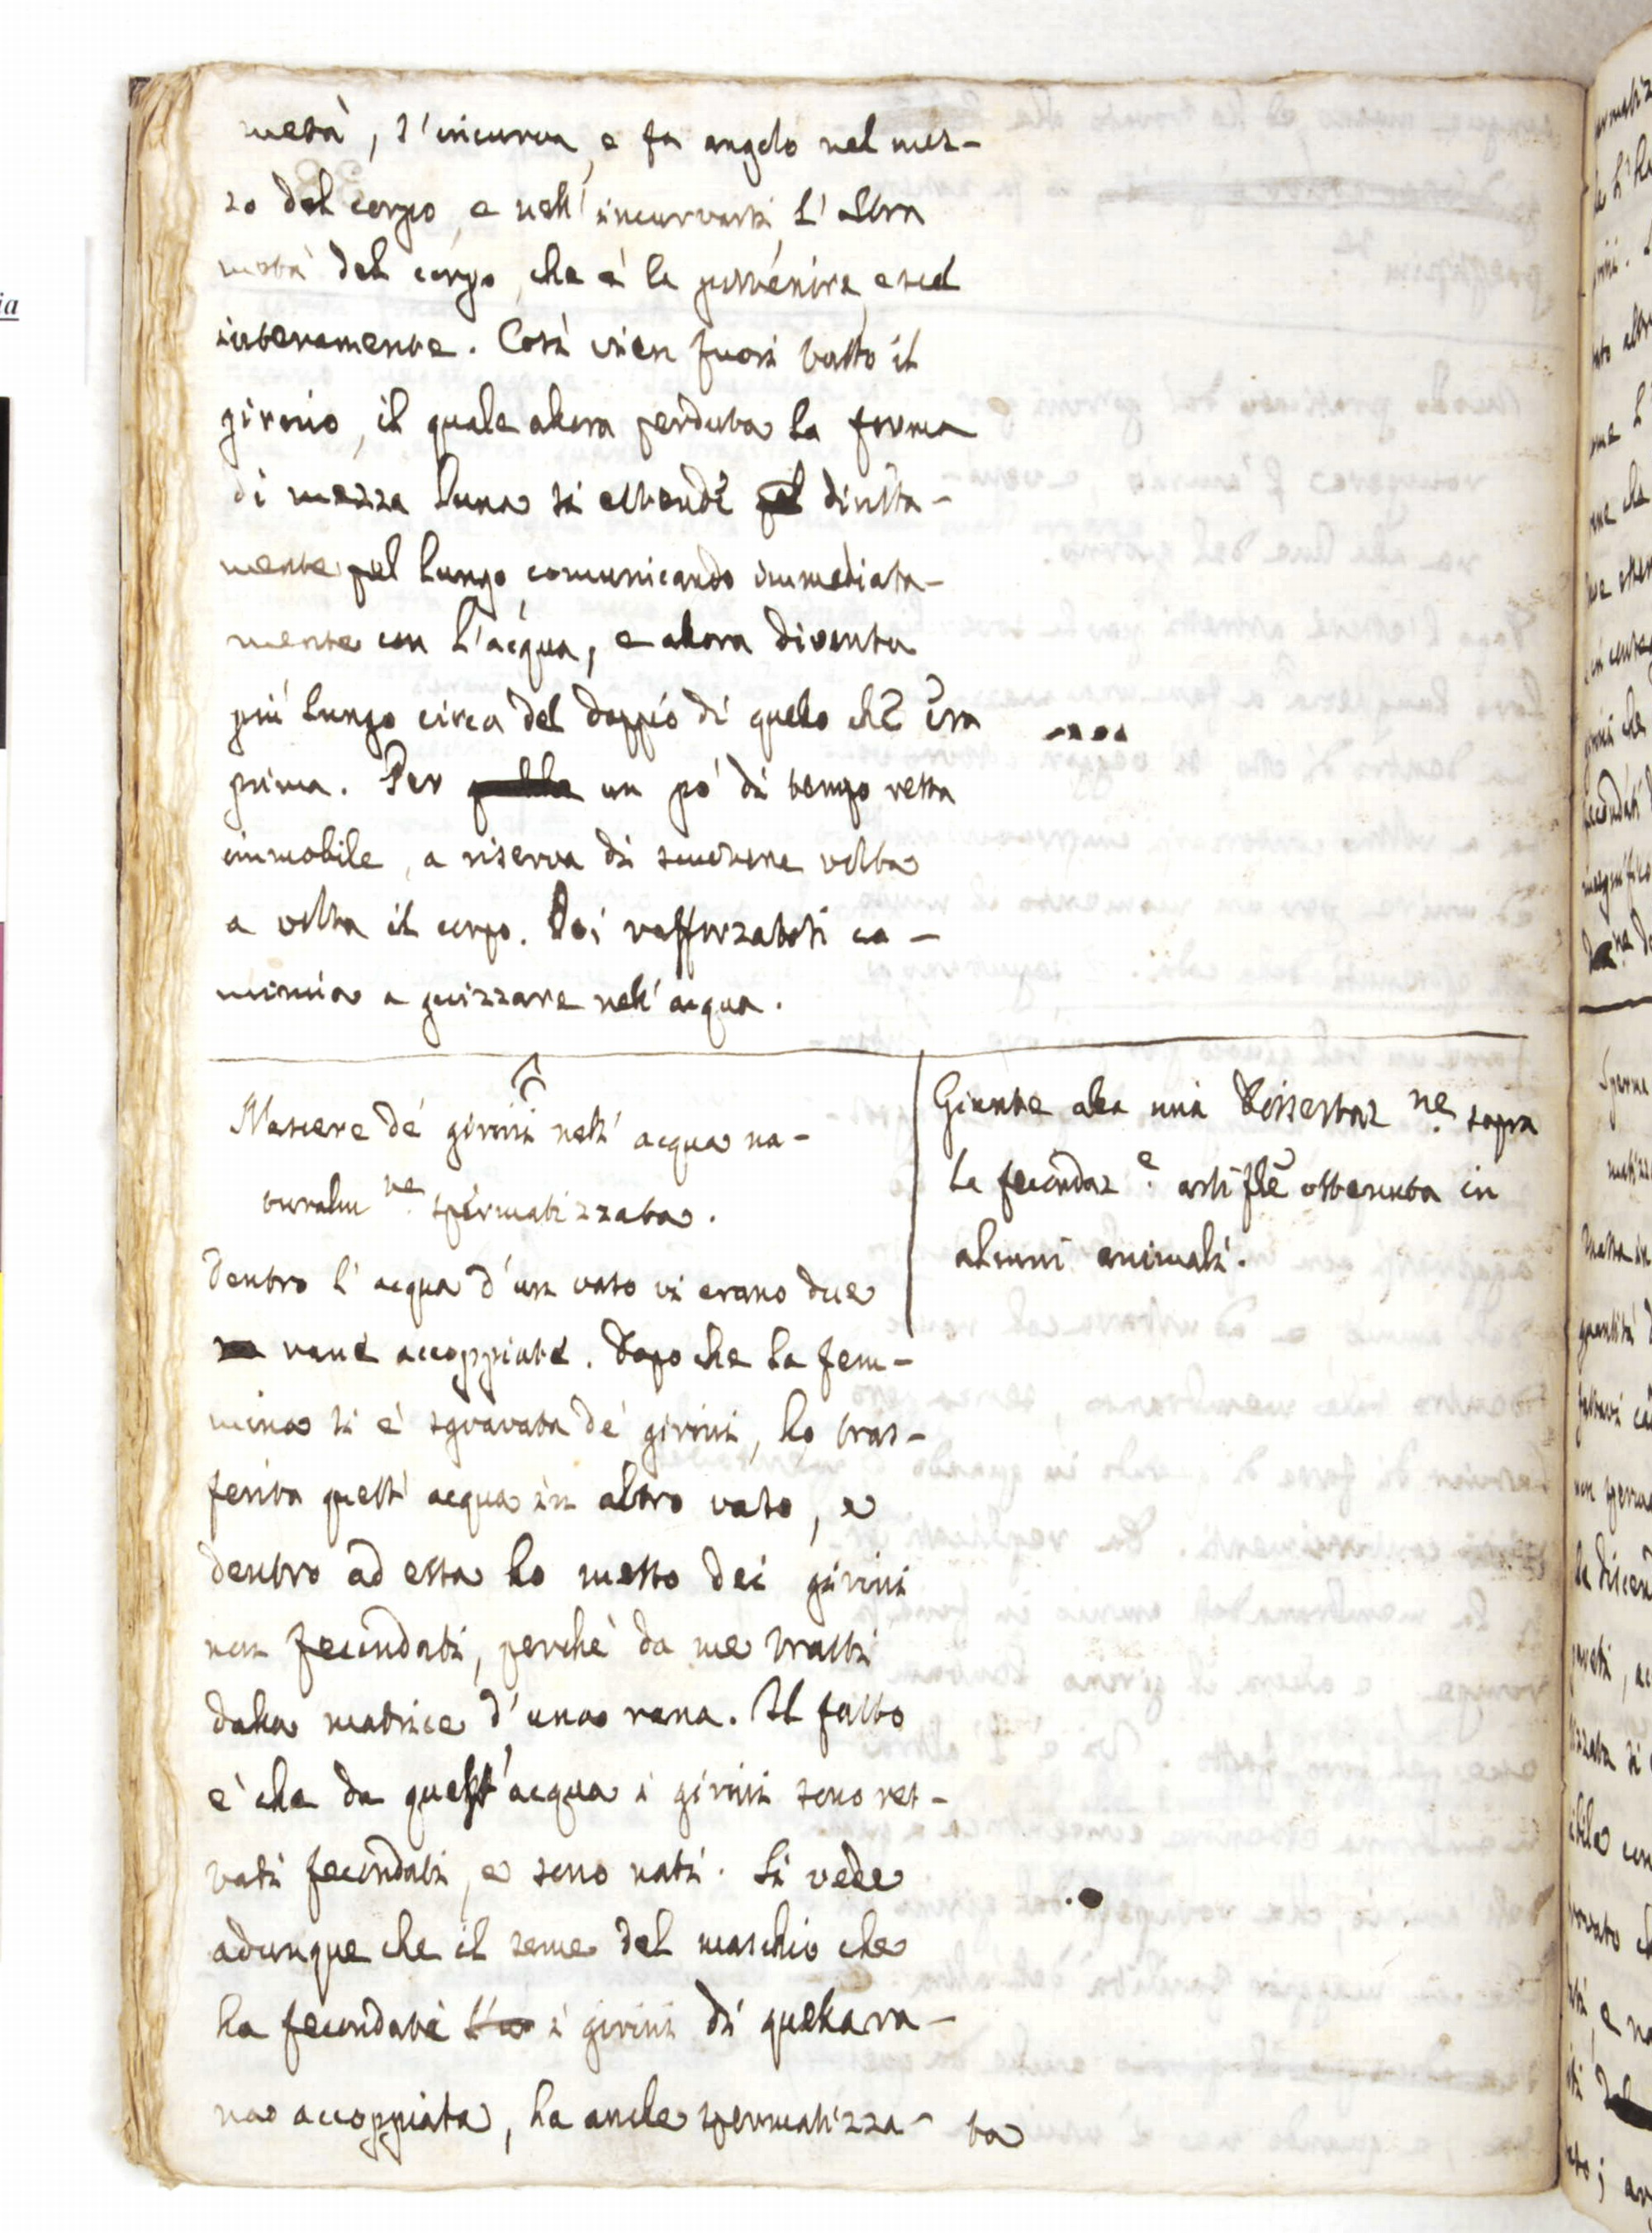 metà, s'incurva, e fa angolo nel mez-
zo del corpo, e nell'incurvarsi, l'altra
metà del corpo, che è la posteriore, esce
interamente. Così vien fuori tutto il
girino, il quale allora perduta la forma
di mezza luna si estende diritta-
mente pel lungo, comunicando immediata-
mente con l'acqua, e allora diventa
più lungo circa del doppio di quello che era
prima. Per un pò di tempo resta
immobile, a riserva di smovere volta
a volta il corpo. Poi rafforzatosi co-
mincia a guizzare nell'acqua.
Nascere de' girini nell'acqua na-
turalm.te spermatizzata.
Dentro l'acqua d'un vaso vi erano due
rane accoppiate. Dopo che la fem-
mina si è sgravata de' girini, ho tras-
ferita quest'acqua in altro vaso, e
dentro ad essa ho messo dei girini
non fecondati, perchè da me tratti
dalla matrice d'una rana. Il fatto
è che da quest'acqua i girini sono res-
tati fecondati, e sono nati. Si vede
adunque che il seme del maschio che
ha fecondati i girini di quella ra-
na accoppiata, ha anche spermatizza-
ta
Giunte alla mia Dissertaz.ne sopra
la fecondaz.e artifle ottenuta in
alcuni animali.